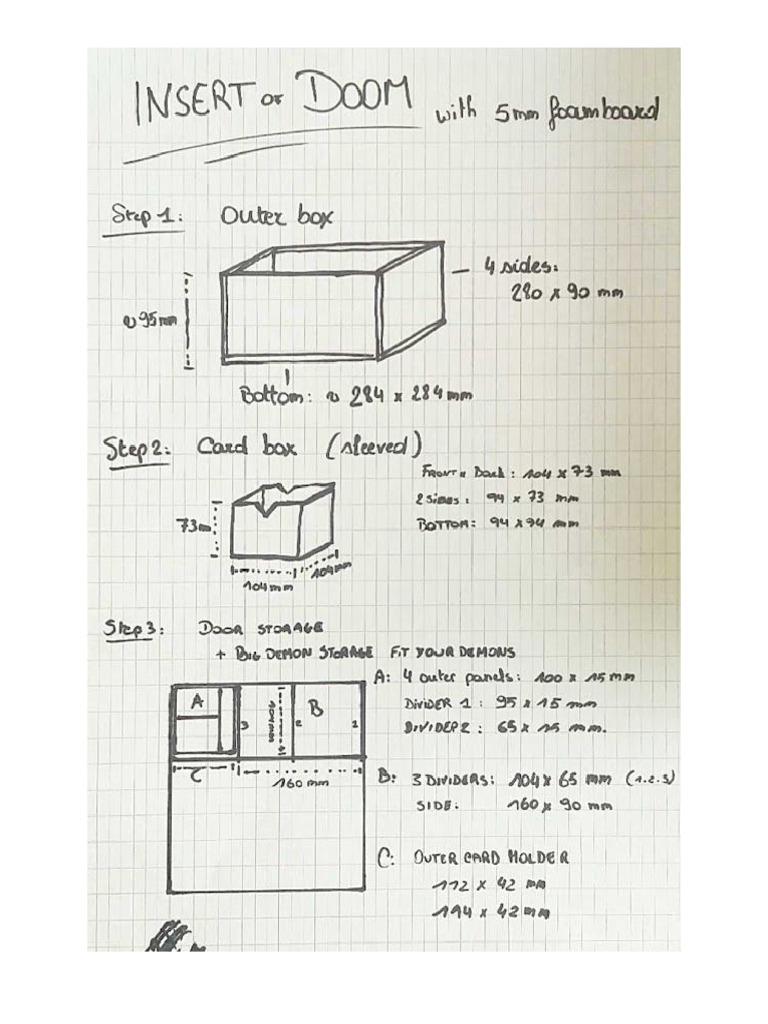 INSERT of DOOM with 5mm foamboard
Step 1: Outer box
4 sides:
280 x 90 mm
~ 95mm
Bottom: ~ 284 x 284 mm
Step 2: Card box (sleeved)
Front + Back: 104 x 73 mm
2 Sides: 94 x 73 mm
Bottom: 94 x 94 mm
73m
104mm
104mm
Step 3: DOOR STORAGE
+ BIG DEMON STORAGE FIT YOUR DEMONS
A: 4 outer panels: 100 x 15 mm
DIVIDER 1: 95 x 15 mm
DIVIDER 2: 65 x 15 mm.
A
3
104mm
2
B
1
C
160 mm
B: 3 DIVIDERS: 104 x 65 mm (1.2.3)
SIDE: 160 x 90 mm
C: OUTER CARD HOLDER
112 x 42 mm
114 x 42 mm